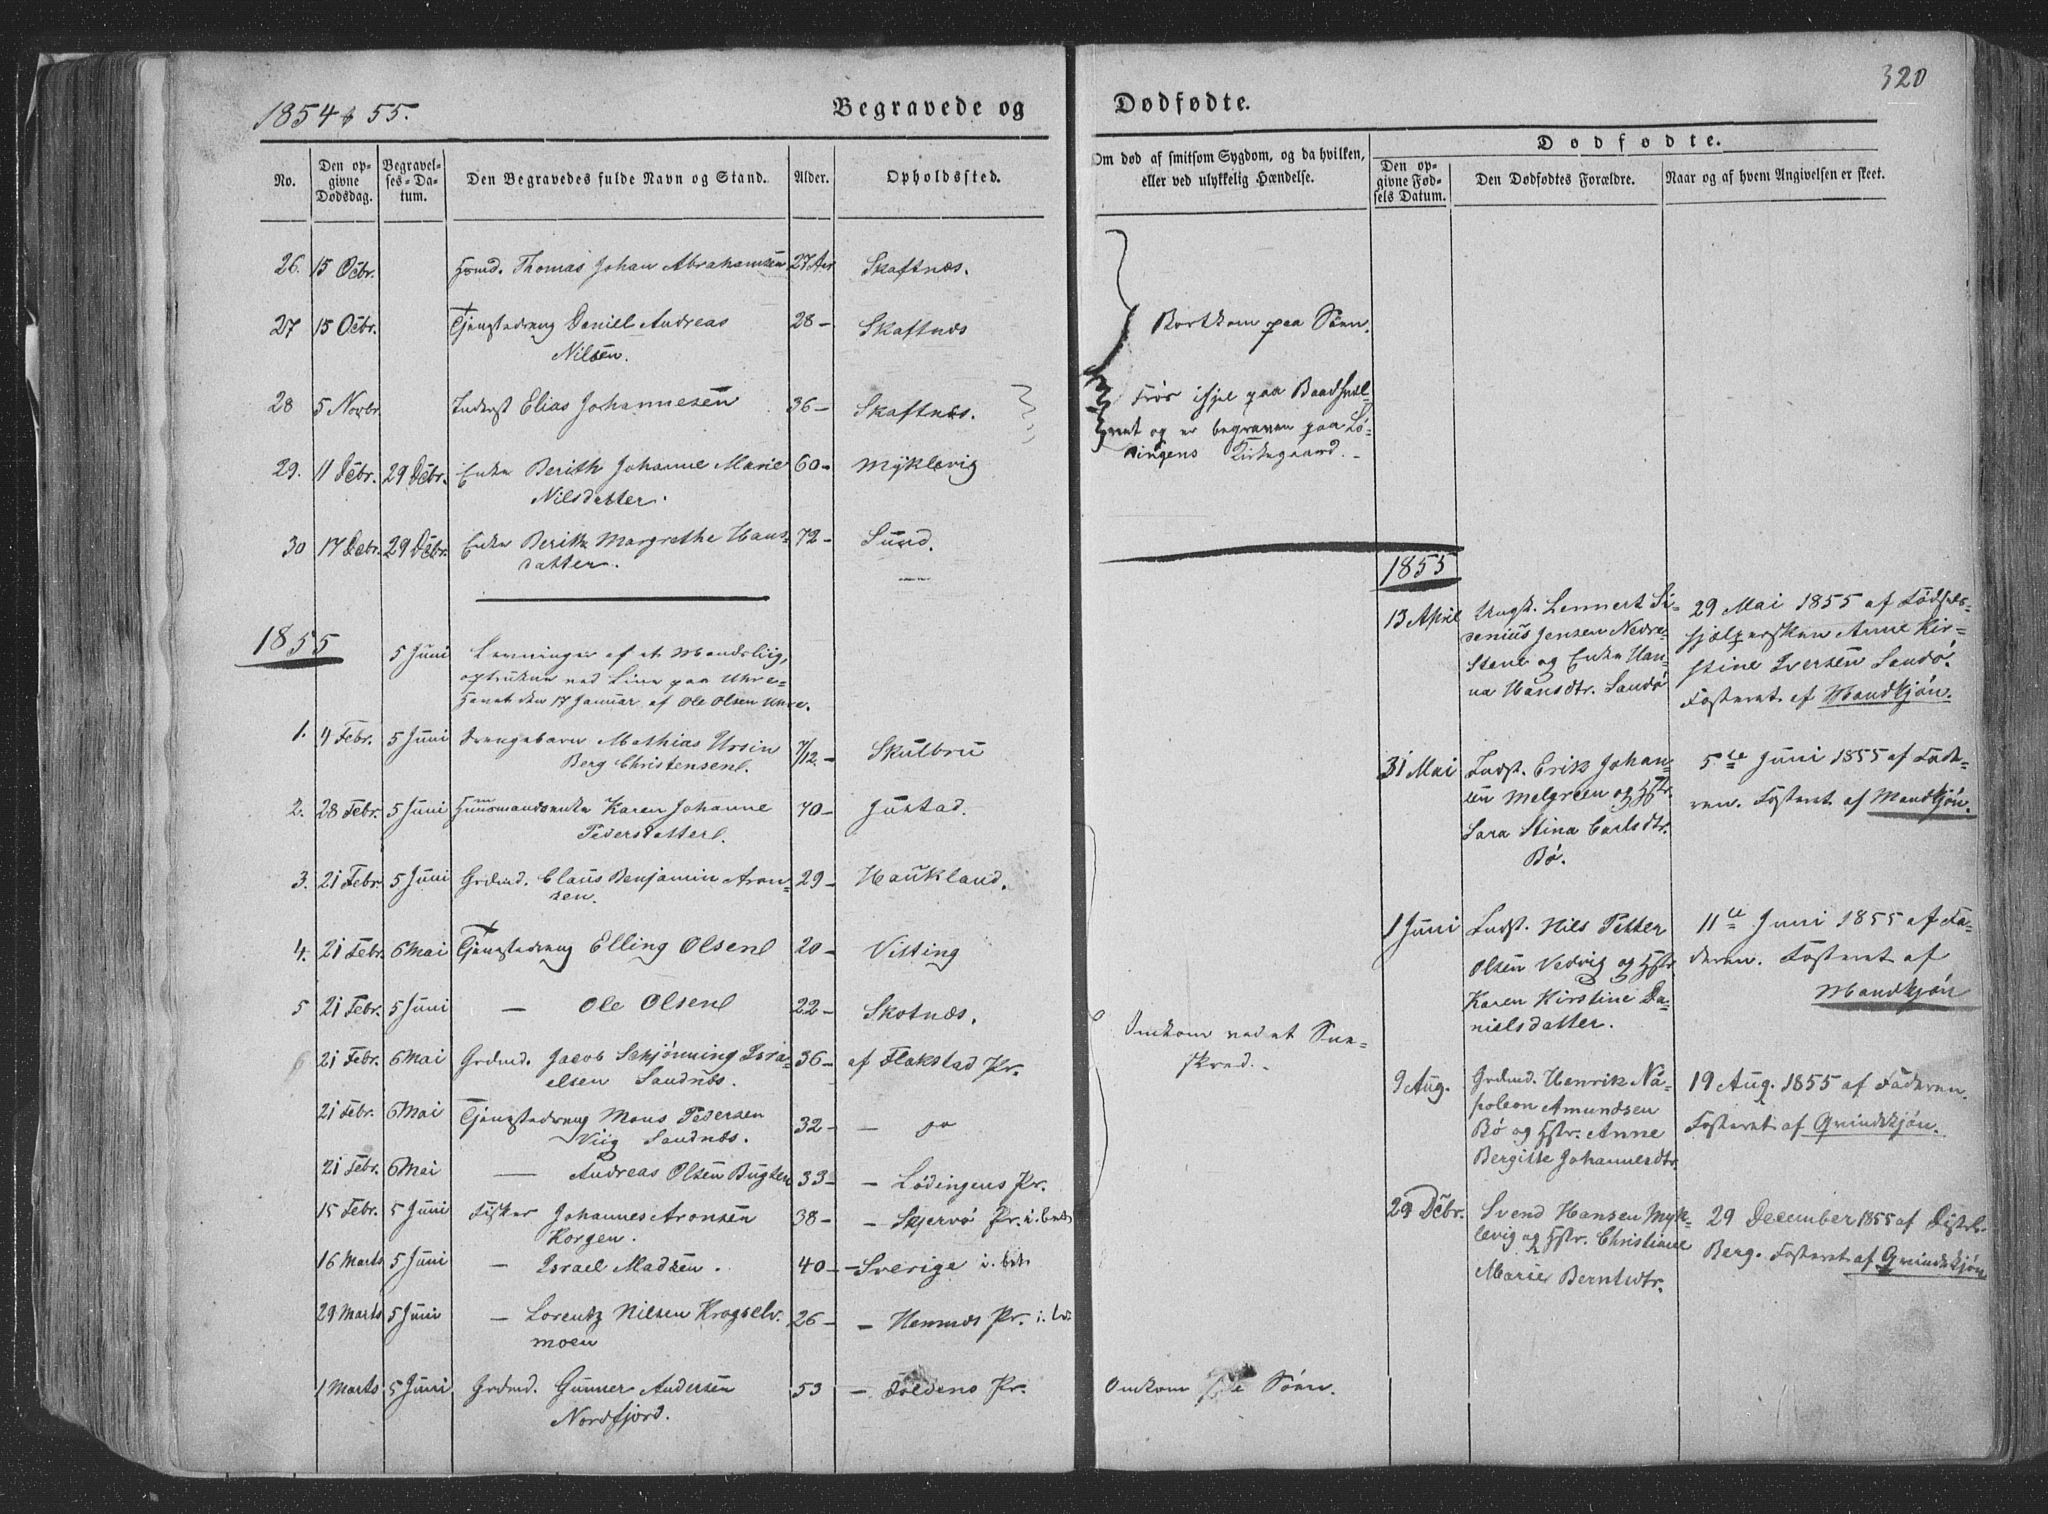 1854 & 55.
Begravede og
Dødfødte.
320
No.
Den opgivne Dødsdag.
Begravelses-Datum.
Den Begravedes fulde Navn og Stand.
Alder.
Opholdssted.
Om død af smitsom Sygdom, og da hvilken,
eller ved ulykkelig Hændelse.
Dødfødte.
Den opgivne Fødsels Datum.
Den Dødfødtes Forældre.
Naar og af hvem Angivelsen er skeet.
26. 15 Octbr. Thomas Johan Abrahamsen 27 Aar Skaftnæs.
27 15 Octbr. Tjenestedreng Daniel Andreas 28 - Skaftnæs
Nilsen.
Bortkom paa Søen.
28 5 Novbr. Inderst Elias Johannesen 36 - Skaftnæs.
Frøs ihjel paa Baadhvælvet og er begraven paa Lødingens Kirkegaard.
29. 11 Decbr. 29 Decbr. Enke Berith Johanne Marie 60 - Myklevig
Nilsdatter.
30 17 Decbr. 29 Decbr. Enke Berith Margrethe Hans- 72 - Sund.
datter.
1855
5 Juni Levninger af et Mandsliig,
optrukne ved Line paa Uhre-
Havet den 17 Januar af Ole Olsen Uhre.
1. 4 Febr. 5 Juni Drengebarn Mathias Ursin 7/12 - Skulbru
Berg Christensen.
2. 28 Febr. 5 Juni Huusmandsenke Karen Johanne 70 - Justad.
Pedersdatter.
3. 21 Febr. 5 Juni Grdmd. Claus Benjamin Aron- 29 - Haukland.
sen.
4. 21 Febr. 6 Mai Tjenestedreng Elling Olsen 20 - Vitting
5 21 Febr. 5 Juni - Ole Olsen 22 - Skotnæs.
6 21 Febr. 6 Mai Grdmd. Jacob Schjønning Isra- 36 - af Flakstad Pr.
elsen Sandnæs.
Omkom ved et Snee-
skred.
21 Febr. 6 Mai Tjenestedreng Mons Pedersen 32 - - do
Viig Sandnæs.
21 Febr. 6 Mai - Andreas Olsen Bugten 33 - - Lødingens Pr.
15 Febr. 5 Juni Fisker Johannes Aronsen 38 - - Skjervø Pr.
Korgen.
16 Marts 5 Juni - Israel Madsen. 40 - - Sverige
29 Marts 5 Juni - Lorentz Nilsen Krogselv- 26 - - Hemnæs Pr.
moen
1 Marts 5 Juni Grdmd. Gunner Andersen 53 - Foldens Pr.
Nordfjord.
Omkom paa Søen.
1855
13 April Ungk. Lennert Si-
denius Jensen Nedre-
Stene og Enke Han-
na Hansdtr. Sandø
29 Mai 1855 af Fødsels-
hjælpersken Anne Kir-
stine Iversen Sandø.
Fosteret af Mandkjøn.
31 Mai Indst. Erik Johan-
sen Melgreen og Hstr.
Sara Stina Carlsdtr.
Bø.
5te Juni 1855 af Fade-
ren. Fosteret af Mandkjøn.
1 Juni Indst. Nils Petter
Olsen Vedvig og Hstr.
Karen Kirstine Da-
nielsdatter.
11te Juni 1855 af Fa-
deren. Fosteret af
Mandkjøn
9 Aug. Grdmd. Henrik Na-
poleon Amundsen
Bø og Hstr. Anne
Bergitte Johannesdtr.
19 Aug. 1855 af Faderen.
Fosteret af Qvindekjøn.
29 Decbr. Svend Hansen Myk-
levig og Hstr. Christiane
Marie Berntsdtr.
29 December 1855 af
Berg. Fosteret af Qvindekjøn